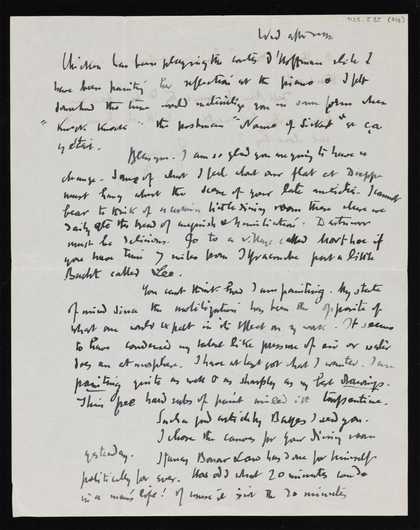 Wed afternoon
Chicken has been playing the contes d'Hoffman while I
have been painting the reflection at the piano & I felt
the time would materialize you in some form when
"Knock Knock" the postman "Name of Sickert" & ça
y était.
I am so glad you are going to have a
change. I feel that our flat at Dieppe
must hang about the scene of your late I cannot
bear to think of little dining room there where we
daily ate the bread of anguish & humiliation. Dartmoor
must be delicious. Go to a village called Morthoe if
you have time 7 miles from Ilfracombe past a little
called Lee.
You can't think how I am painting. My state
of mind since the mobilization has been the opposite of
what one would expect in its effect on my work. It seems
to have condensed my talent like pressure of air or water
does an atmosphere. I have at last got what I wanted. I am
painting quite as well & as sharply as my last drawings.
Thin free hard rubs of paint mixed in turpentine.
Such a good article by I send you.
I chose the canvas for your dining room
yesterday. I fancy Bonar Law has done for himself
politically for ever. How odd what 20 minutes can do
in a man's life! Of course it isn't the 20 minutes